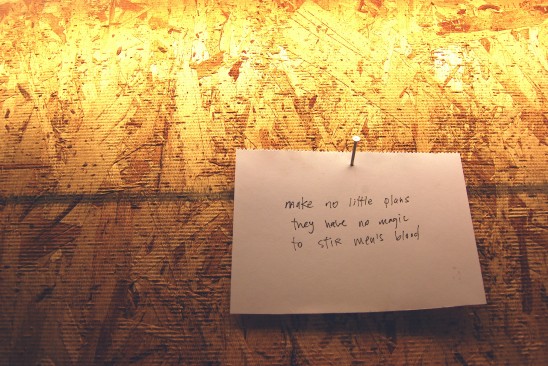 make no little plans
they have no magic
to stir men's blood